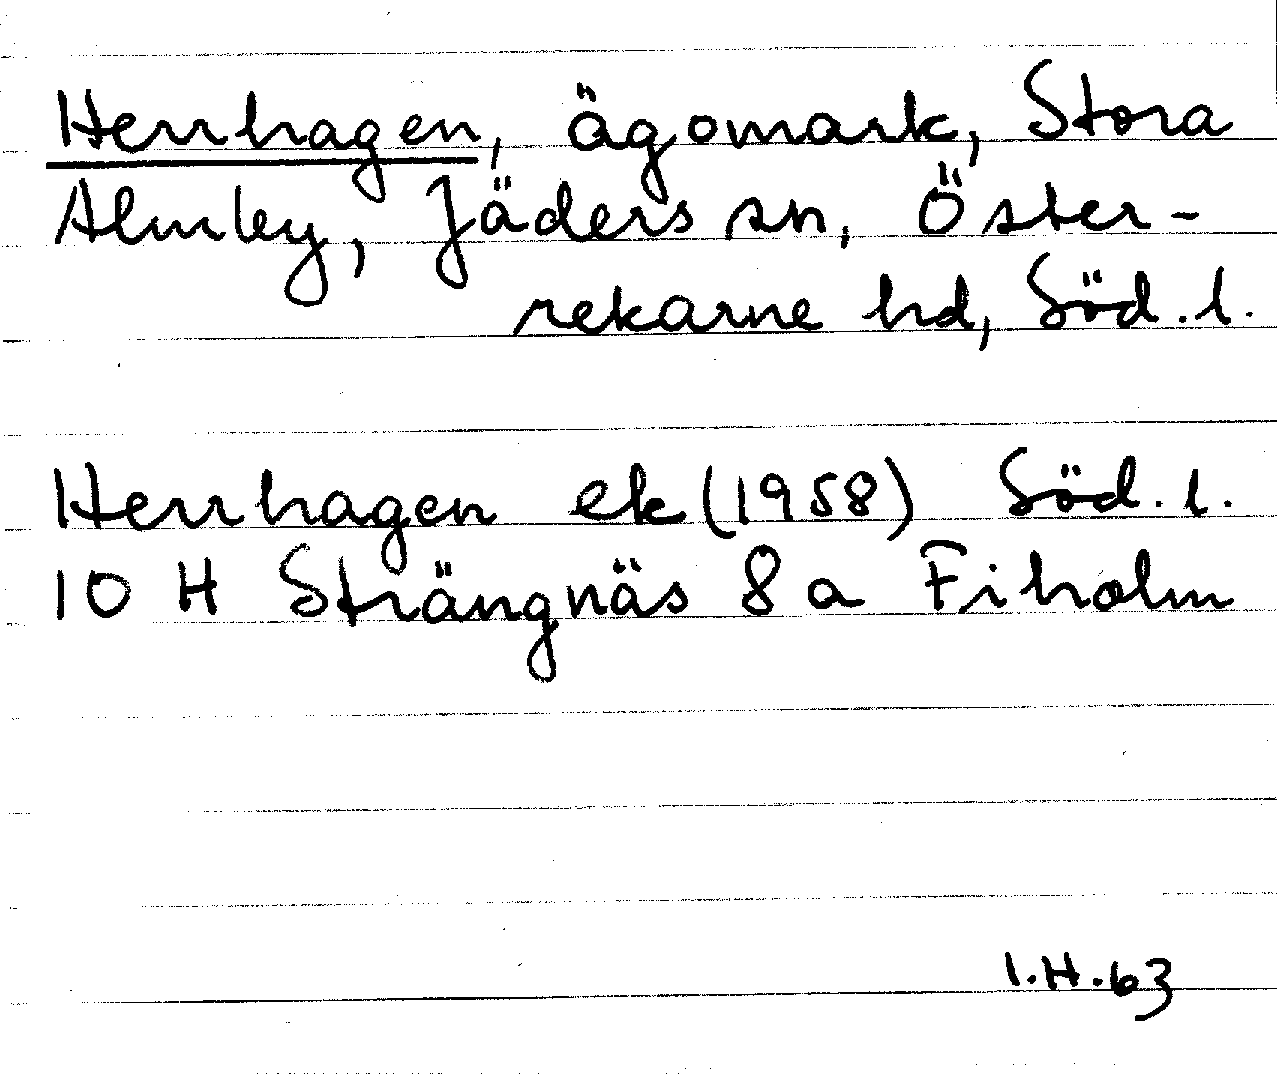 Herrhagen, ägomark, Stora
Almby, Jäders sn, Öster-
rekarne hd, Söd. l.
Herrhagen ek (1958) Söd. l.
10 H Strängnäs 8 a Fiholm
I.H. 63